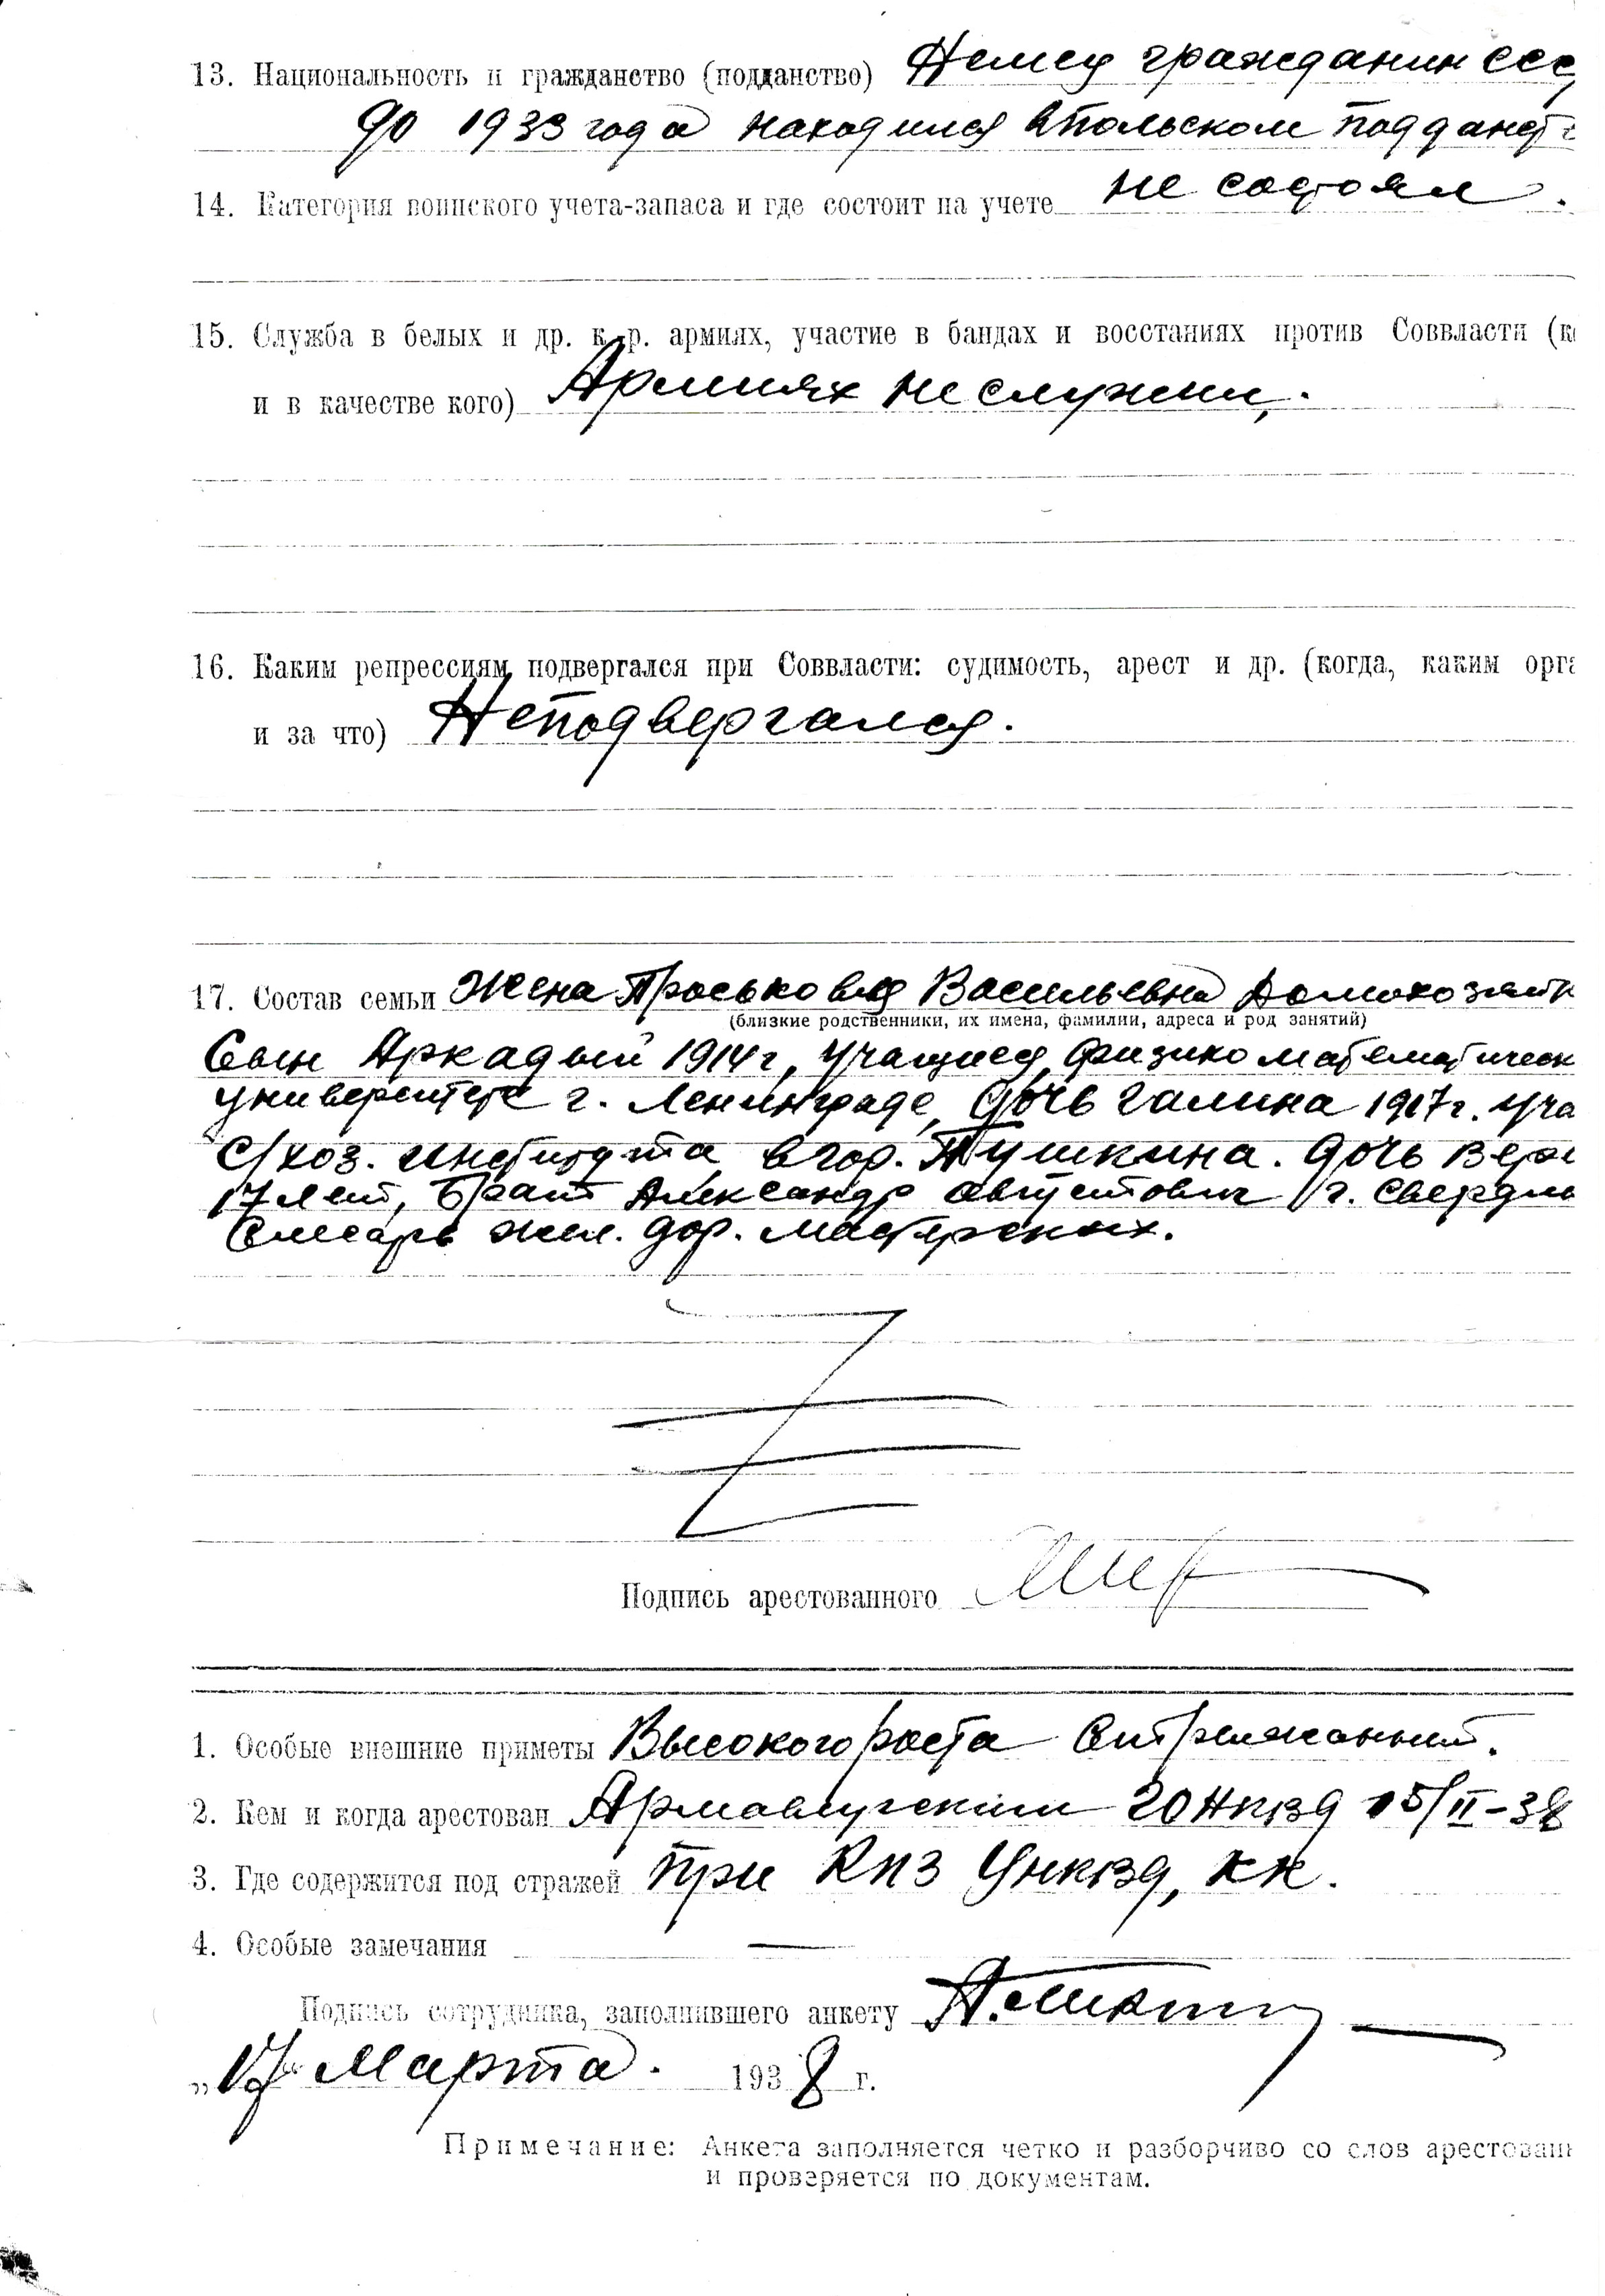 13. Национальность и гражданство (подданство) Немец гражданин ссс
до 1933 года находился в польском подданст
14. Категория воинского учета-запаса и где состоит на учете не состоял.
15. Служба в белых и др. к.-р. армиях, участие в бандах и восстаниях против Соввласти (к
и в качестве кого) Армиях не служил.
16. Каким репрессиям подвергался при Соввласти: судимость, арест и др. (когда, каким орга
и за что) Неподвергался.
17. Состав семьи Жена Просковья Васильевна Домохозяйк
(близкие родственники, их имена, фамилии, адреса и род занятий)
Сын Аркадий 1914 г, учащися физико математическ
университете г. Ленинграде, дочь Галина 1917 г. уча
с/хоз. института в гор. Пушкина. дочь Вера
17 лет, Брат Александр Августович г. Свердло
Слесарь жел. дор. мастерских.
Подпись арестованного
1. Особые внешние приметы Высокого роста
2. Кем и когда арестован Армавирским ГО НКВД 15/II-38
3. Где содержится под стражей при КПЗ УНКВД, КК.
4. Особые замечания —
Подпись сотрудника, заполнившего анкету
„17" Марта. 1938 г.
Примечание: Анкета заполняется четко и разборчиво со слов арестованн
и проверяется по документам.